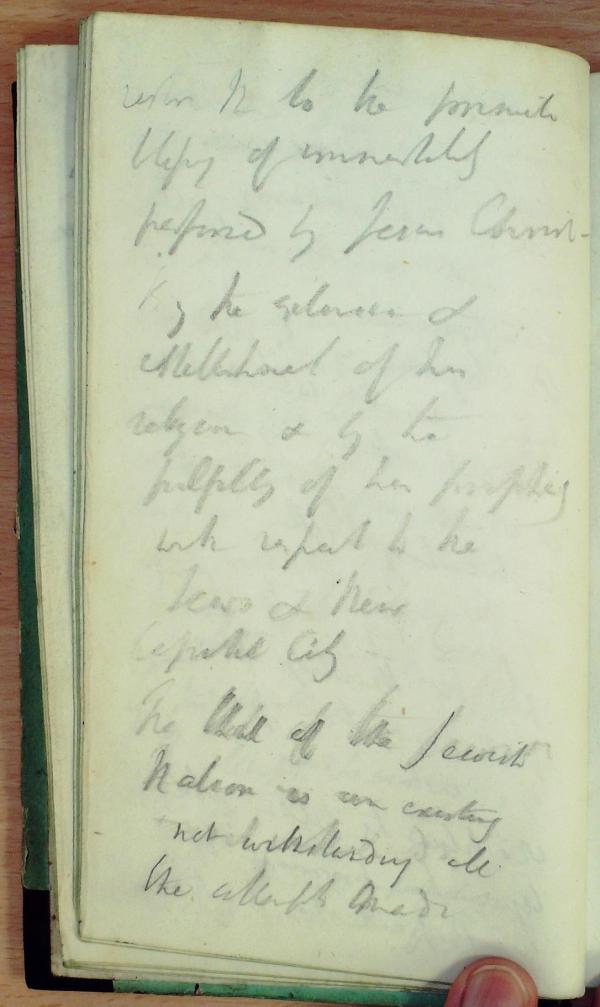 to the promise
of immortality
professed by Jesus Christ -
by the extension &
establishment of his
religion & by the
fulfilling of his prophecies
with respect to the
Jews & their
Capital City -
The State of the Jewish
Nation is even existing
notwithstanding all
the attempts made